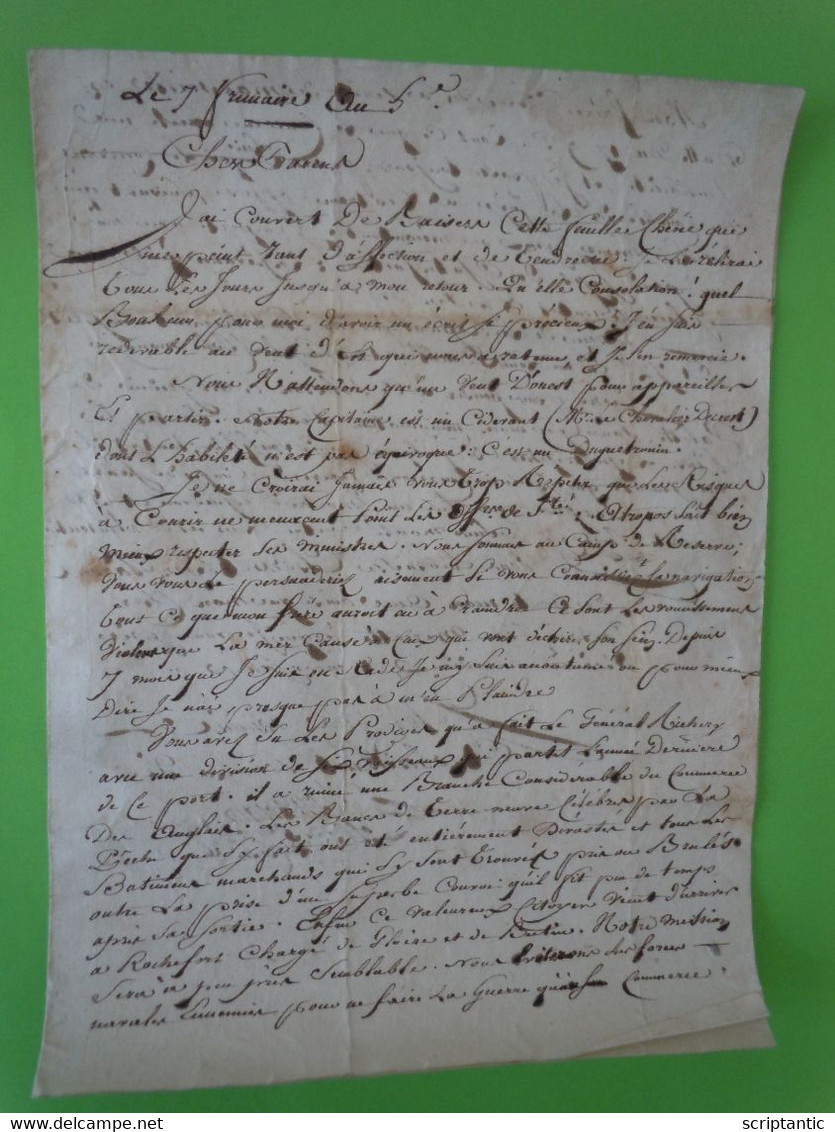 Le 7 frimaire an 5e.
Cher Parent
J'ai Couvert De Baisers Cette feuille Chérie qui
me peint tant d'affection et de tendresse. Je la rélirai
tous les jours jusqu'a mon retour. Qu'elle Consolation! quel
Bonheur pour moi d'avoir un écrit si précieux. J'en suis
redevable au vent d'Est qui nous a retenu, et je l'en remercie.
Nous N'attendons qu'un vent D'ouest pour appareiller
Et partir. Notre Capitaine est un Ciderant (Mr. le Chevalier Decrest)
dont L'habileté n'est pas équivoque: C'est un Duguetrouin.
Je ne Croirai jamais vous trop Répéter que Les Risques
à Courir ne menacent point Les offers. de Sté. Atropos sait bien
mieux respecter ses ministres. Nous sommes au Camp de Reserve;
vous vous le persuaderiez aisement si vous connaissiez la navigation
tout ce que mon frère auroit eu à craindre Ce sont Les vomissemens
violens que La mer Cause à Ceux qui vont déchirer son sein. Depuis
7 mois que Je suis en rade, Je m'y suis accoutumé ou pour mieux
Dire Je n'ai presque pas à m'en Plaindre
Vous avez sçu Les Prodiges qu'a fait Le Général Richery
avec une division de six vaisseaux qui partit L'année Dernière
de Ce port. il a ruiné une Branche Considérable du Commerce
Des Anglais. Les Bancs de terre neuve Célébres par La
Pêche que s'y fait ont été entièrement Dévastés et tous Les
Batimens marchands qui s'y sont trouvés pris ou Brulés
outre La prise d'un superbe Convoi qu'il fit peu de temps
après sa sortie. Enfin Ce valeureux Citoyen vient d'arriver
a Rochefort Chargé de Gloire et de Butin. Notre mission
sera à peu près semblable. Nous éviterons les forces
navales Ennemies pour ne faire La Guerre qu'au Commerce
scriptantic